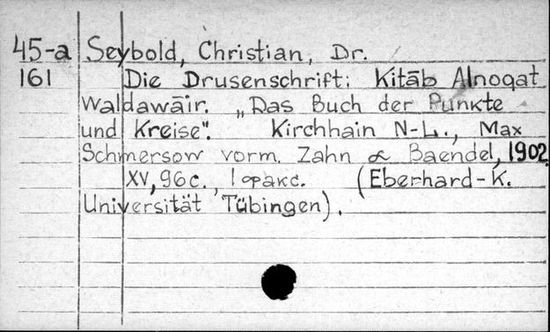 45-a Seybold, Christian, Dr.
161 Die Drusenschrift: Kitāb Alnoqat
Waldawāir. „Das Buch der Punkte
und Kreise". Kirchhain N-L., Max
Schmersow vorm. Zahn & Baendel, 1902
XV, 96 с., 1 факс. (Eberhard-K.
Universität Tübingen).